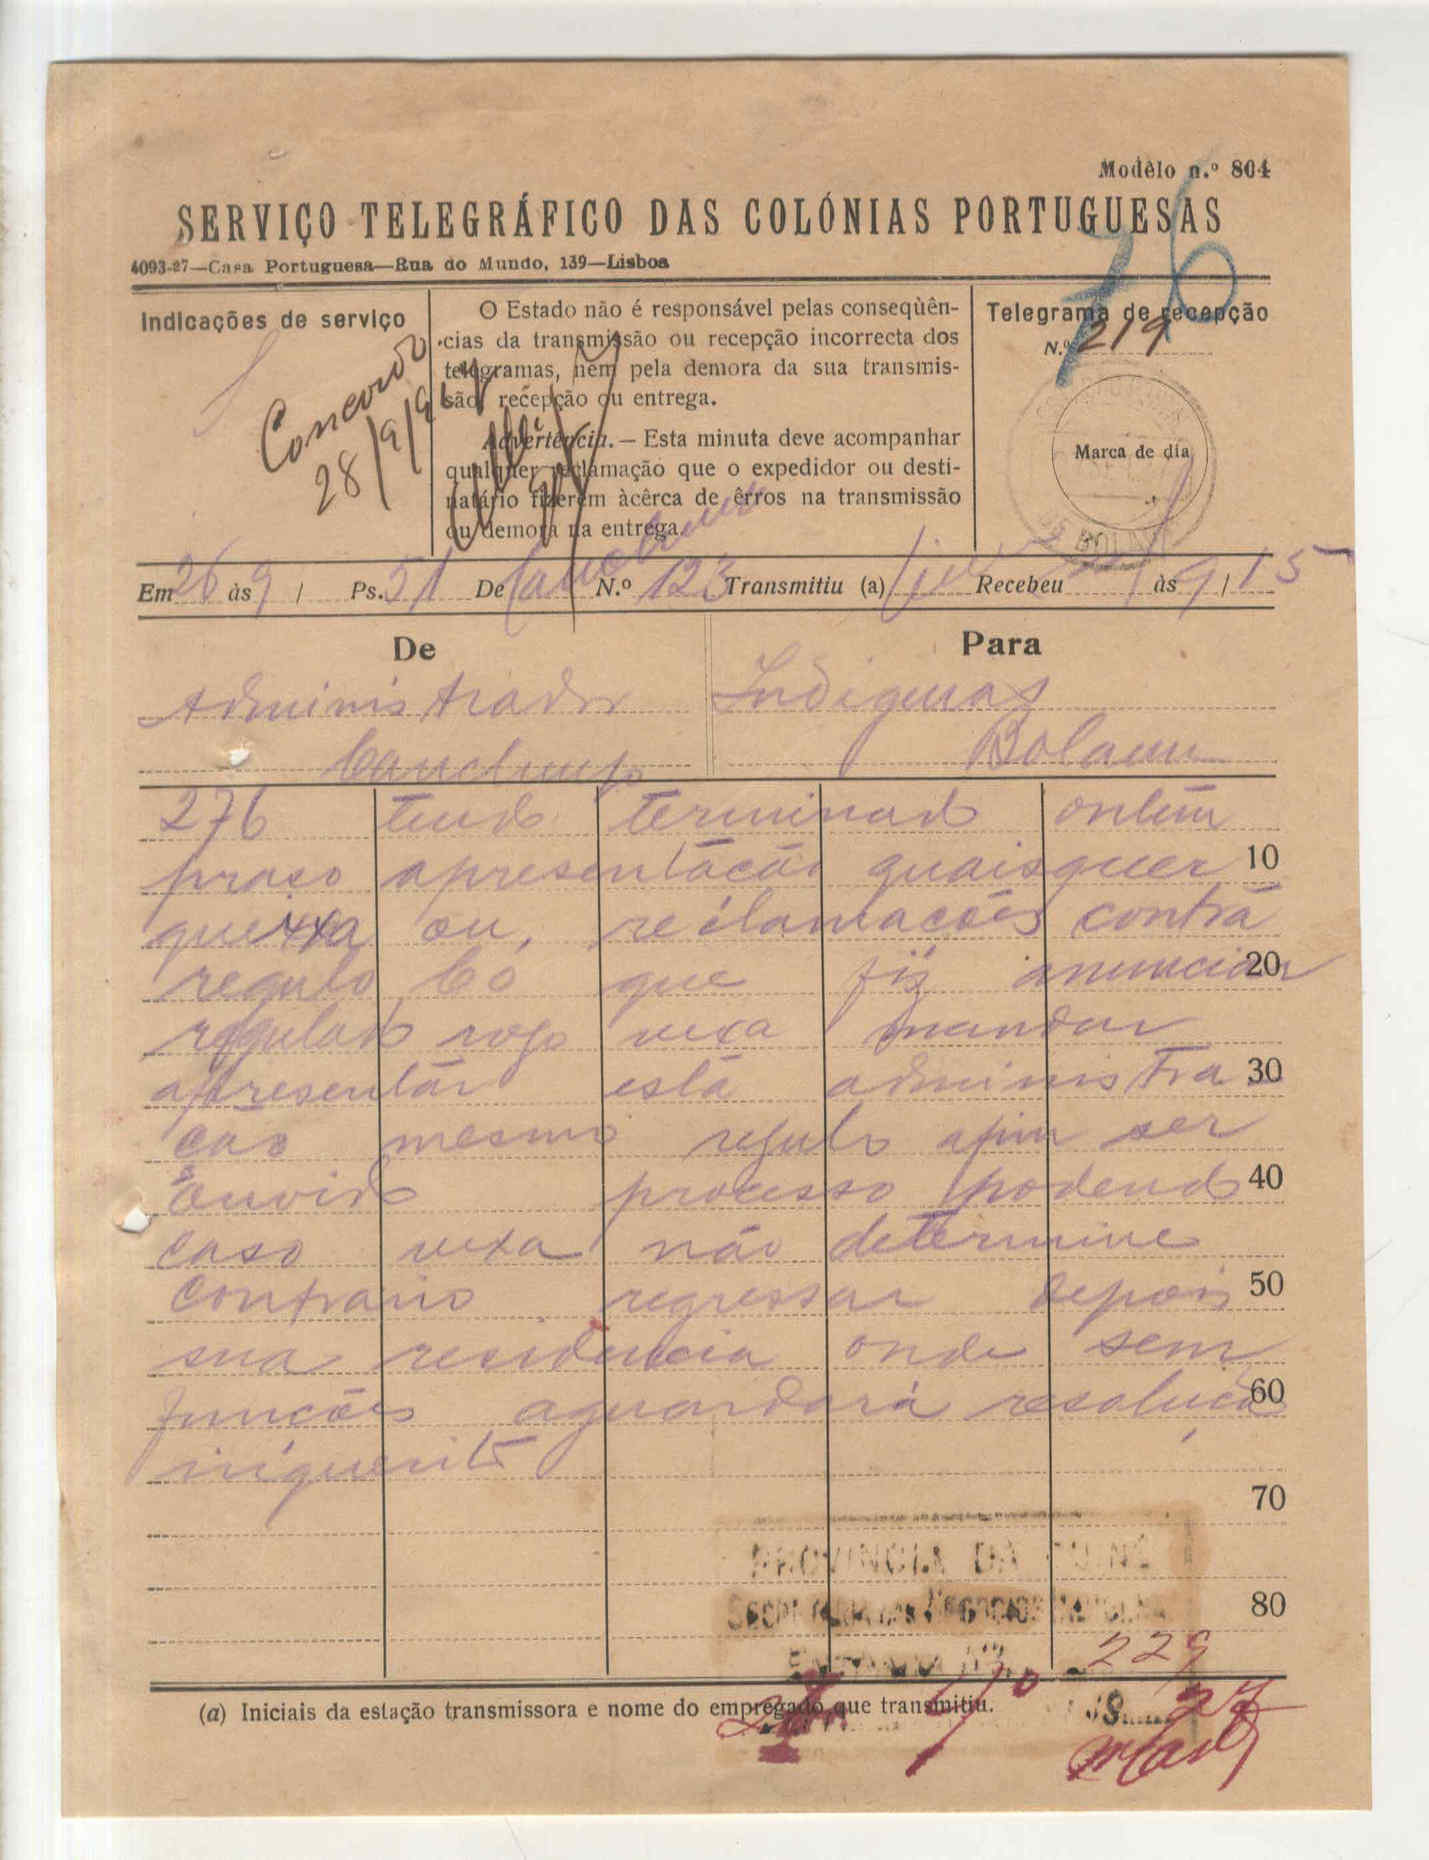 Modêlo n.º 804
76
SERVIÇO TELEGRÁFICO DAS COLÓNIAS PORTUGUESAS
4093-27—Casa Portuguesa—Rua do Mundo, 139—Lisboa
Indicações de serviço
Concordo
28/9/927
O Estado não é responsável pelas conseqùên-
cias da transmissão ou recepção incorrecta dos
telegramas, nem pela demora da sua transmis-
são, recepção ou entrega.
Advertência.— Esta minuta deve acompanhar
qualquer reclamação que o expedidor ou desti-
natário fizerem àcêrca de êrros na transmissão
ou demora na entrega.
Telegrama de recepção
N.º 219
Marca de dia
BOLAMA
Em 26 às 9 / Ps. 51 De Canchungo N.º 123 Transmitiu (a) Recebeu às 9 / 15
De
Para
Administrador
Canchungo
Indigenas
Bolama
276 tendo terminado ontem
praso apresentação quaisquer 10
queixa ou reclamações contra
regulo Có que fiz anunciar 20
regulado rogo vexa mandar
apresentar esta administra 30
ção mesmo regulo afim ser
ouvido processo podendo 40
caso vexa não determine
contrario regressar depois 50
sua residencia onde sem
funções aguardará resolução 60
inquerito
70
80
PROVINCIA DA GUINÉ
229
27
(a) Iniciais da estação transmissora e nome do empregado que transmitiu.